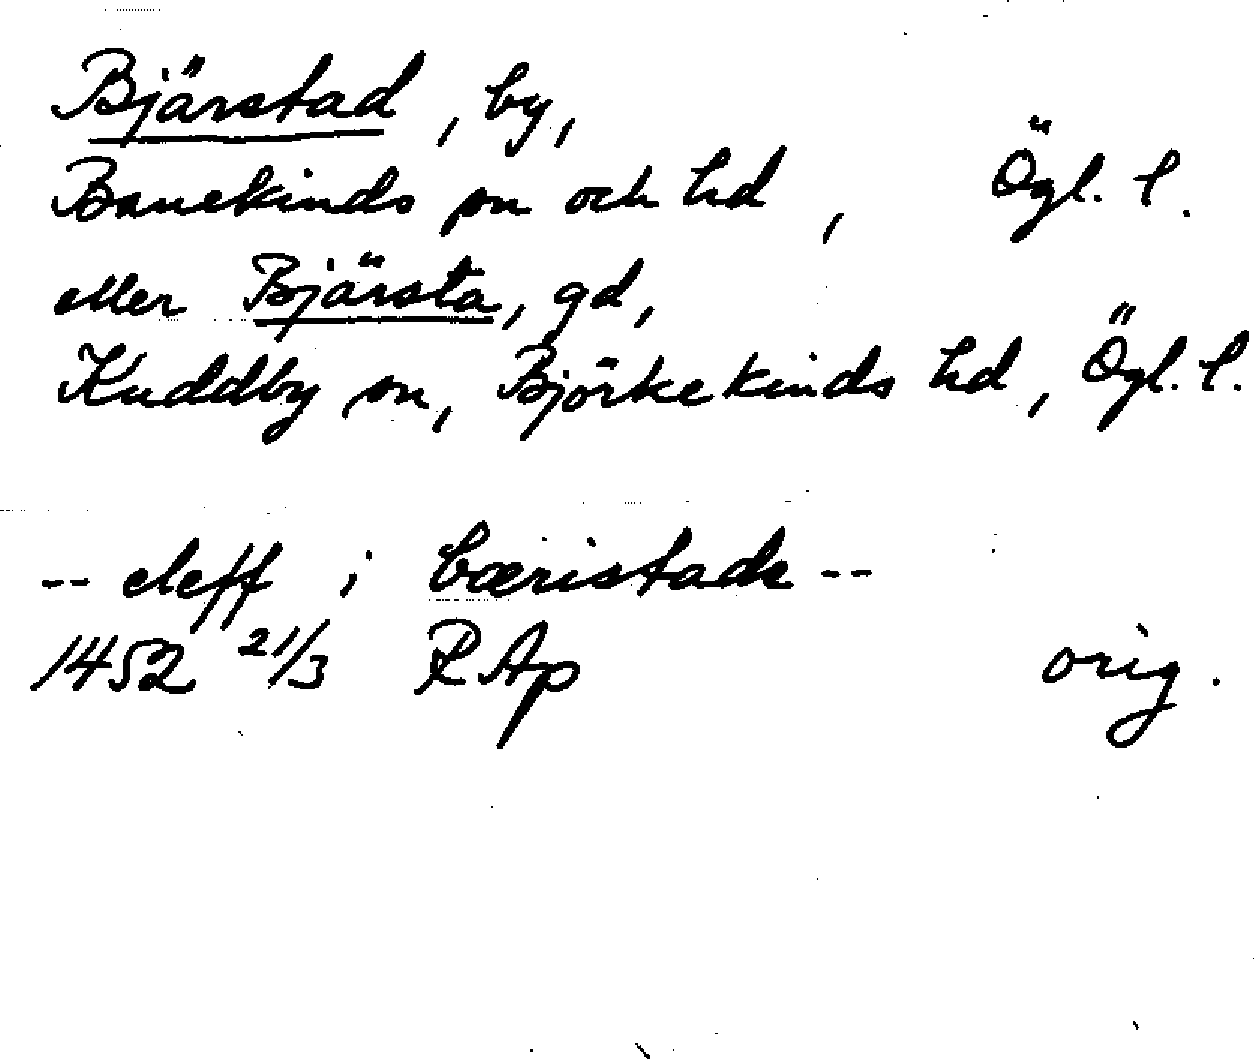 Bjärstad, by,
Banekinds sn och hd, Ögl. l.
eller Bjärsta, gd,
Kuddby sn, Björkekinds hd, Ögl. l.
-- eleff i bæristadh --
1452 21/3 RAp orig.